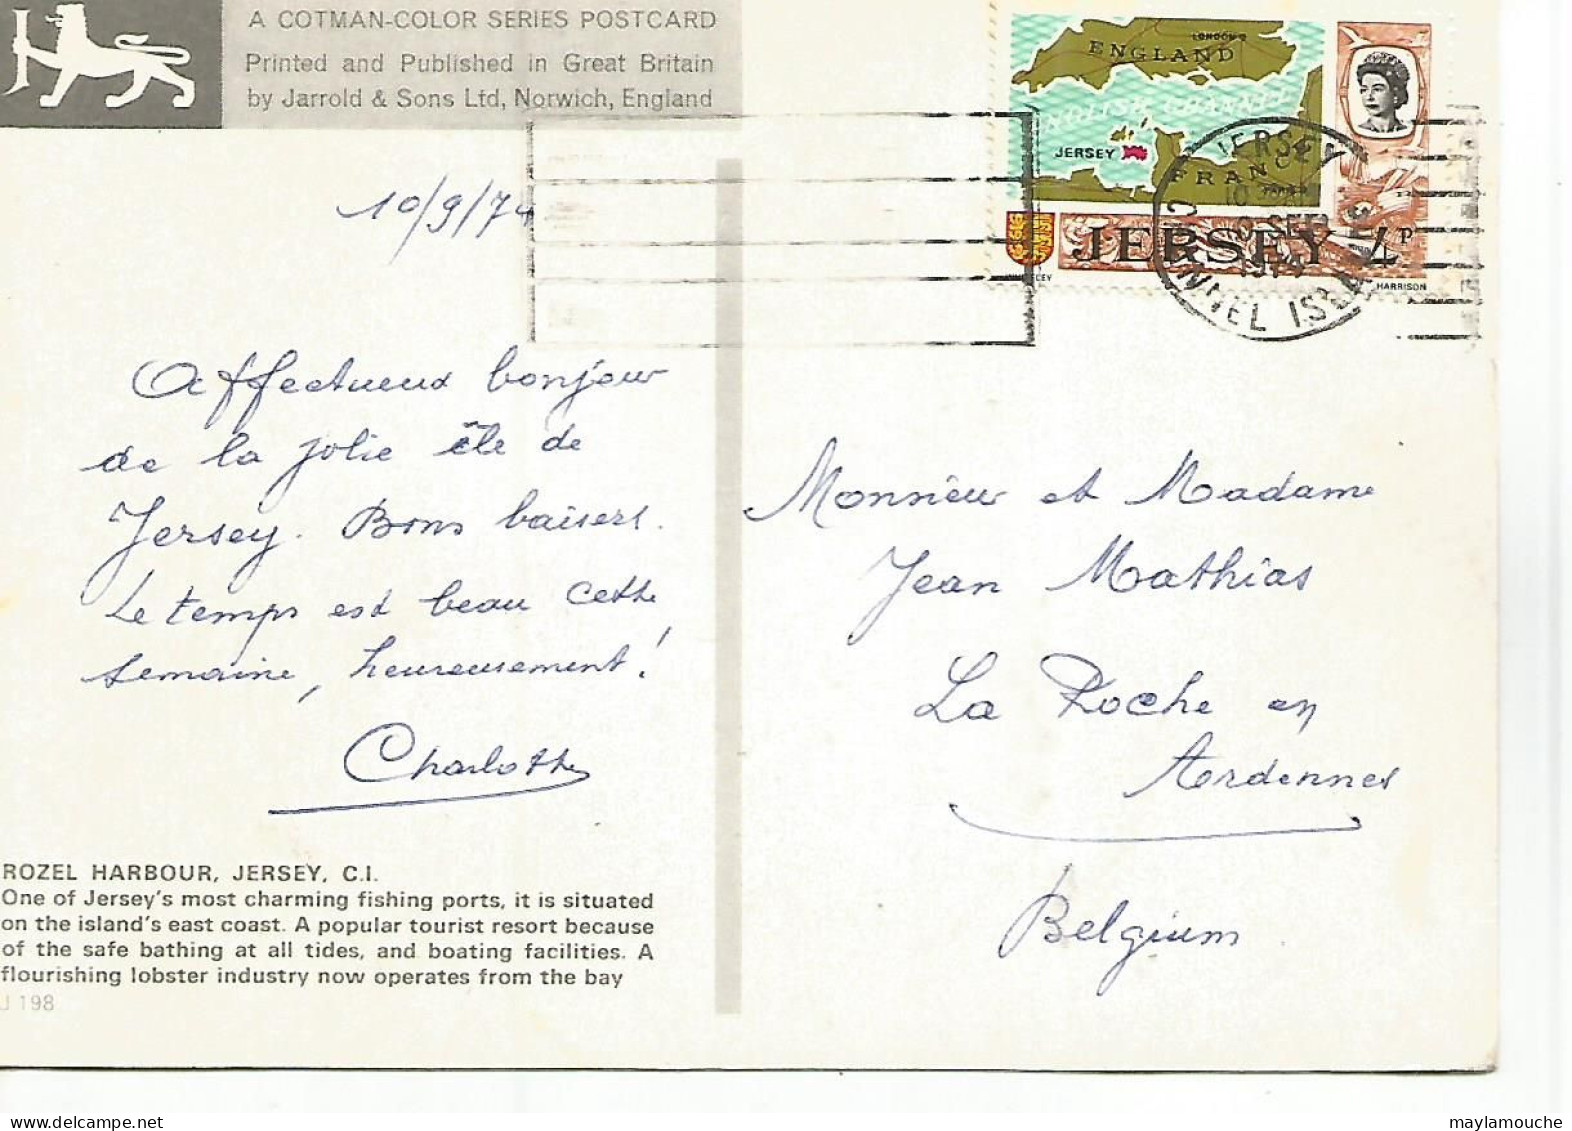 A COTMAN-COLOR SERIES POSTCARD
Printed and Published in Great Britain
by Jarrold & Sons Ltd, Norwich, England
LONDON
ENGLAND
ENGLISH CHANNEL
JERSEY
FRANCE
PARIS
JERSEY 4P
HARRISON
JERSEY
10 SEP
1974
CHANNEL ISLANDS
10/9/74
Affectueux bonjour
de la jolie île de
Jersey. Bons baisers.
Le temps est beau cette
semaine, heureusement!
Charlotte
Monsieur et Madame
Jean Mathias
La Roche en
Ardennes
Belgium
ROZEL HARBOUR, JERSEY, C.I.
One of Jersey's most charming fishing ports, it is situated
on the island's east coast. A popular tourist resort because
of the safe bathing at all tides, and boating facilities. A
flourishing lobster industry now operates from the bay
J 198
maylamouche